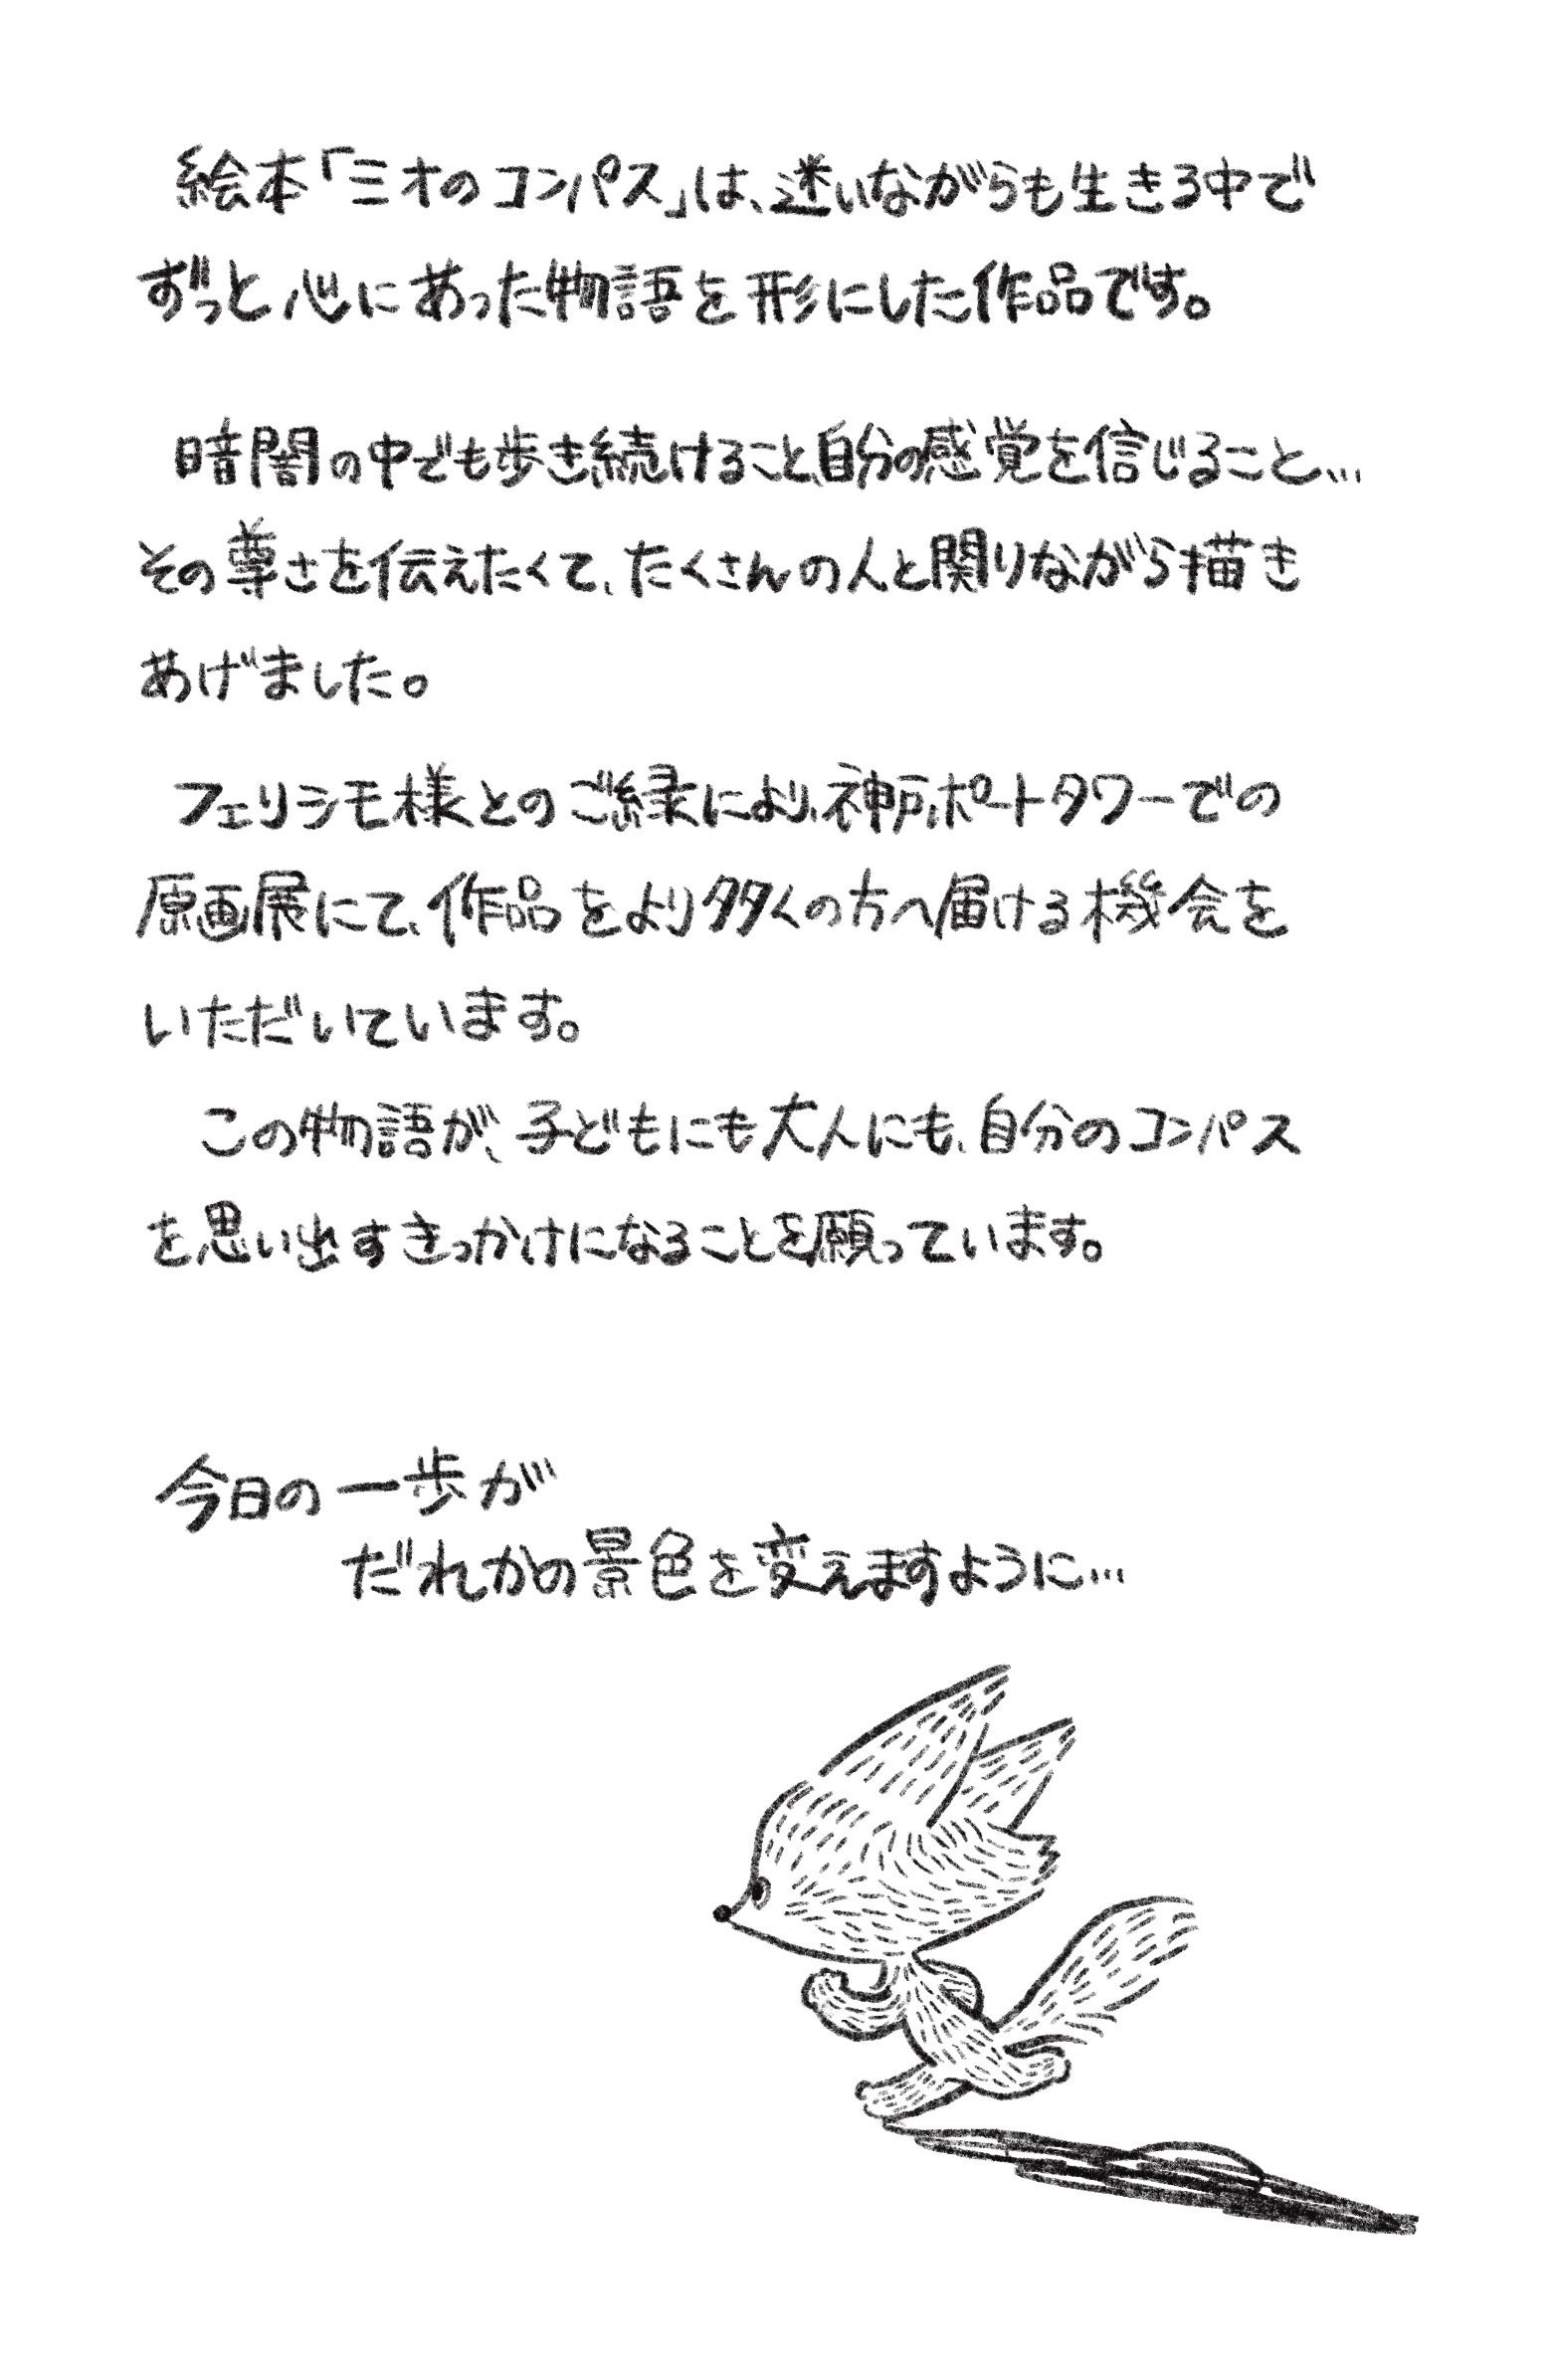 絵本「ミオのコンパス」は、迷いながらも生きる中で
ずっと心にあった物語を形にした作品です。
暗闇の中でも歩き続けること、自分の感覚を信じること…
その尊さを伝えたくて、たくさんの人と関りながら描き
あげました。
フェリシモ様とのご縁により、神戸ポートタワーでの
原画展にて、作品をより多くの方へ届ける機会を
いただいています。
この物語が、子どもにも大人にも、自分のコンパス
を思い出すきっかけになることを願っています。
今日の一歩が
だれかの景色を変えますように…